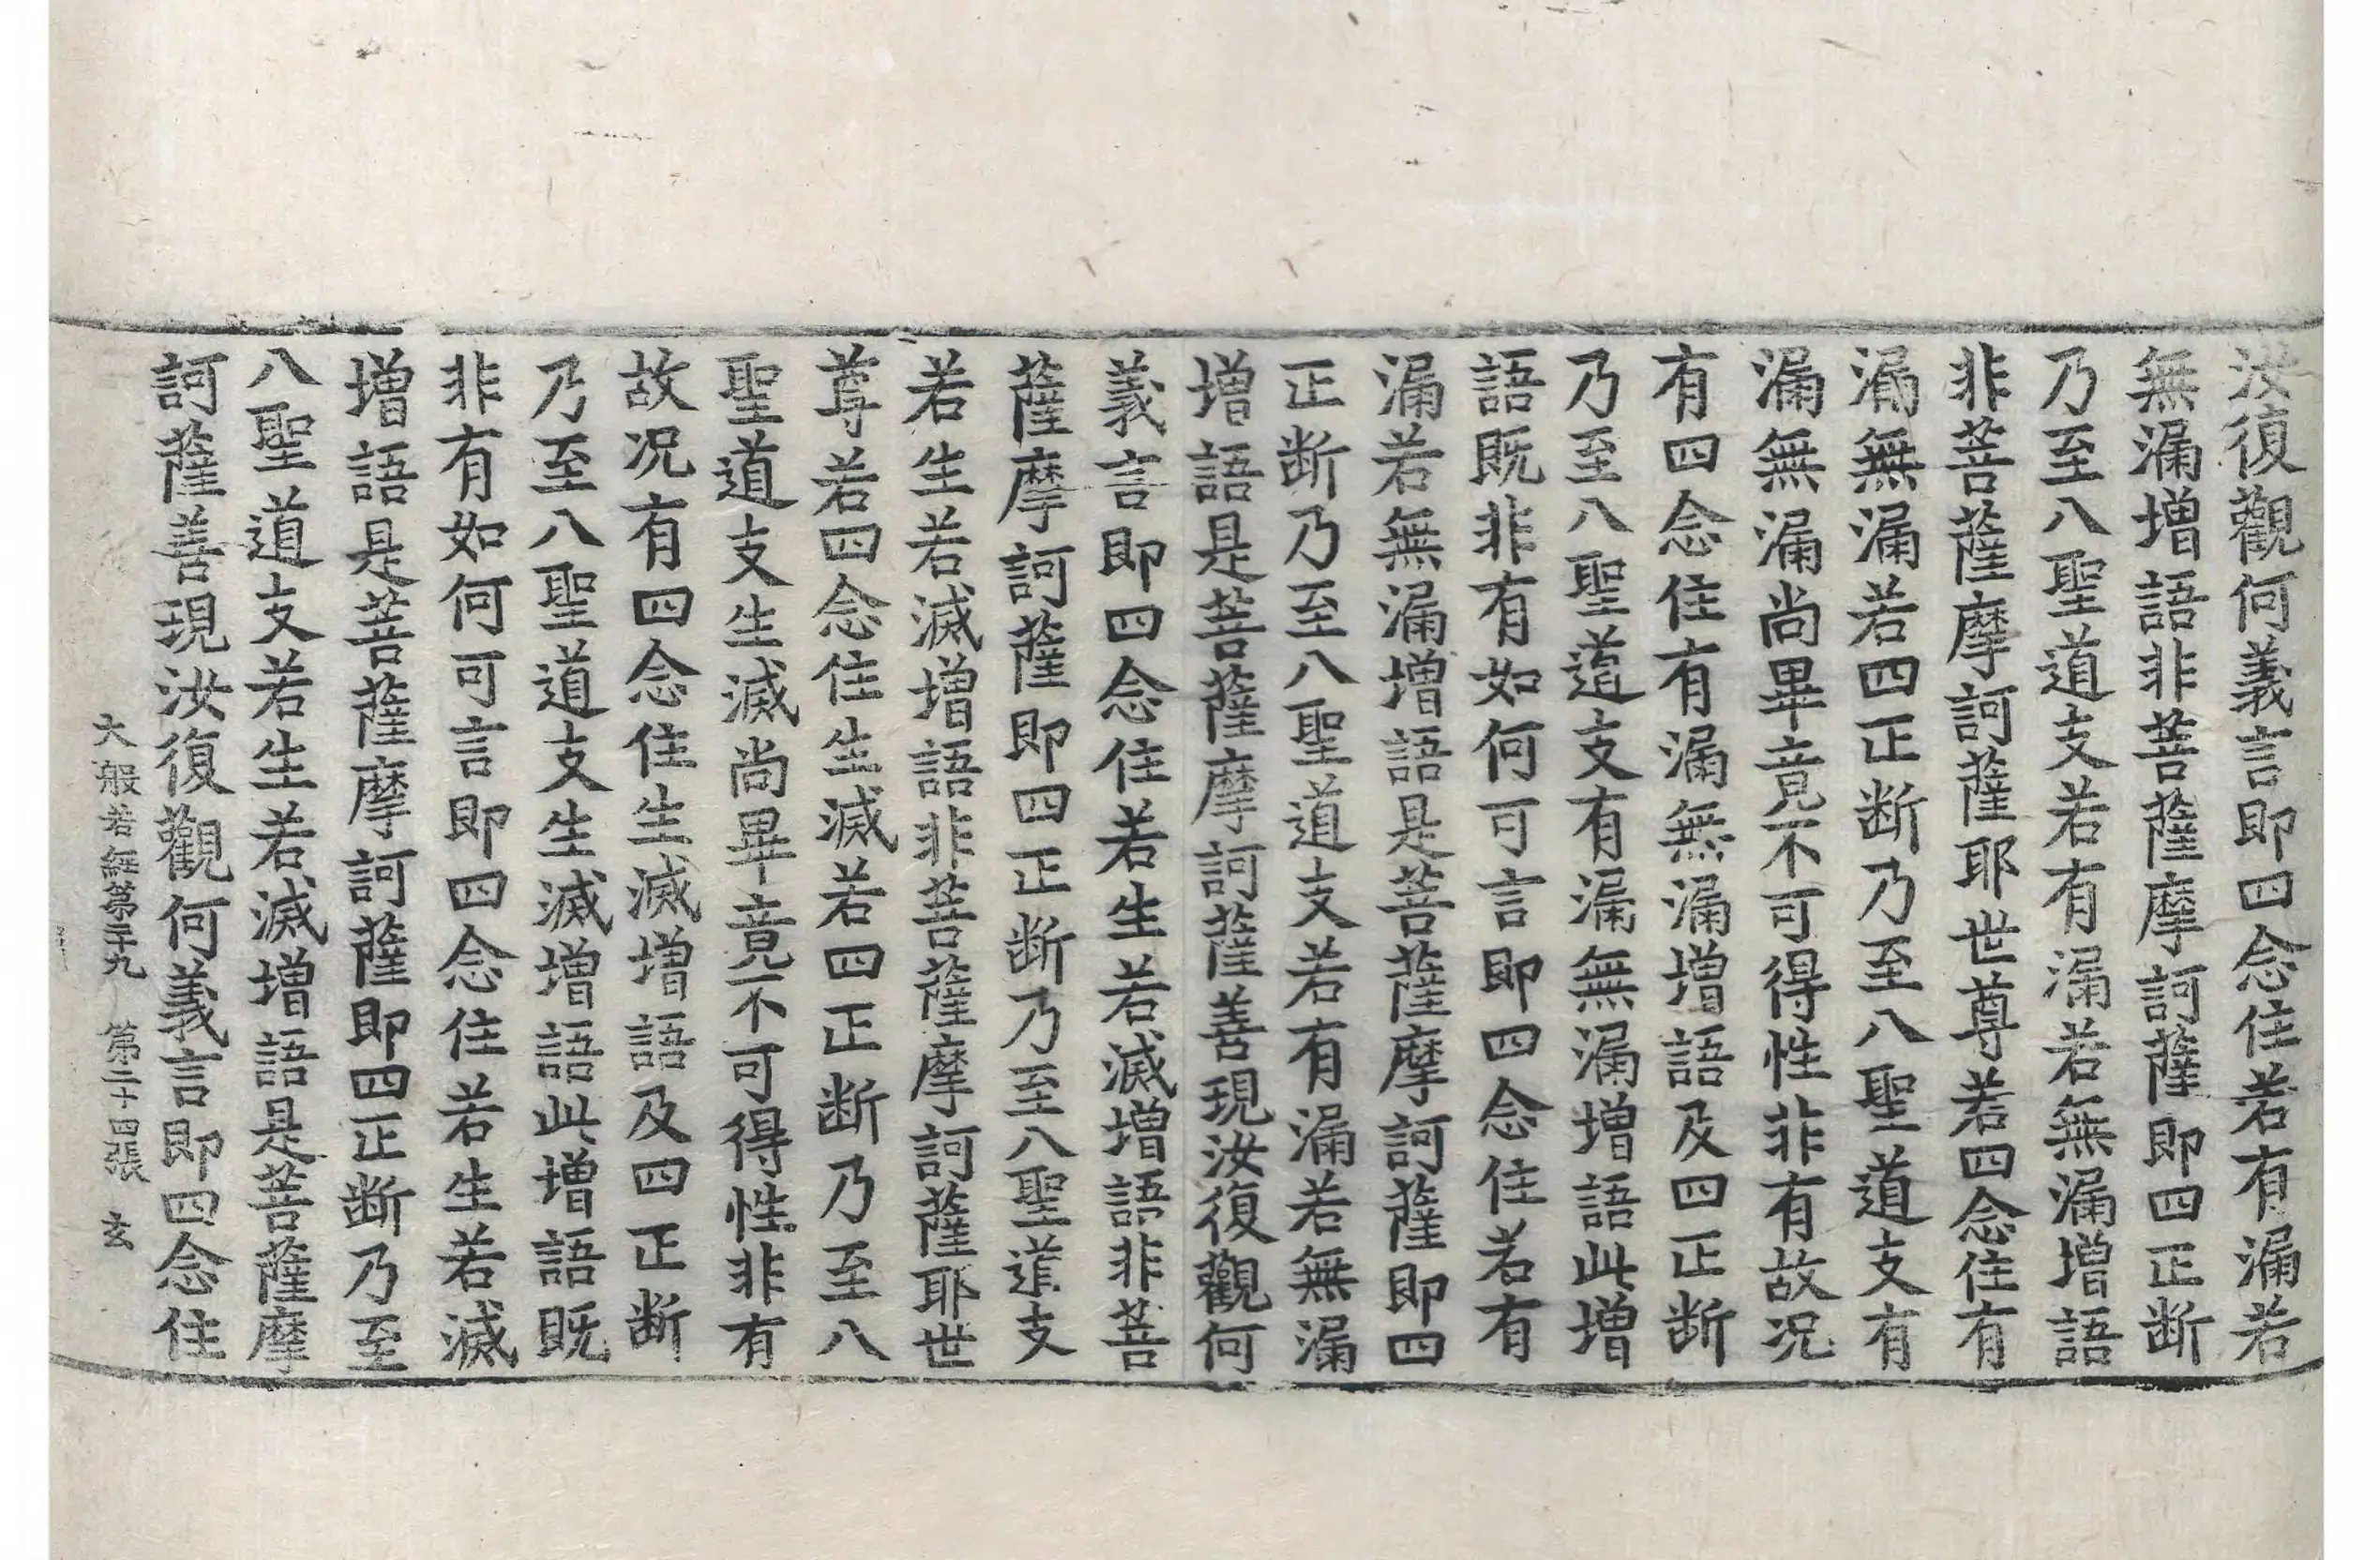 汝復觀何義言即四念住若有漏若
無漏增語非菩薩摩訶薩即四正断
乃至八聖道支若有漏若無漏增語
非菩薩摩訶薩耶世尊若四念住有
漏無漏若四正断乃至八聖道支有
漏無漏尚畢竟不可得性非有故况
有四念住有漏無漏增語及四正断
乃至八聖道支有漏無漏增語此增
語既非有如何可言即四念住若有
漏若無漏增語是菩薩摩訶薩即四
正断乃至八聖道支若有漏若無漏
增語是菩薩摩訶薩善現汝復觀何
義言即四念住若生若滅增語非菩
薩摩訶薩即四正断乃至八聖道支
若生若滅增語非菩薩摩訶薩耶世
尊若四念住生滅若四正断乃至八
聖道支生滅尚畢竟不可得性非有
故况有四念住生滅增語及四正断
乃至八聖道支生滅增語此增語既
非有如何可言即四念住若生若滅
增語是菩薩摩訶薩即四正断乃至
八聖道支若生若滅增語是菩薩摩
訶薩善現汝復觀何義言即四念住
大般若經第二十九 第二十四張 玄